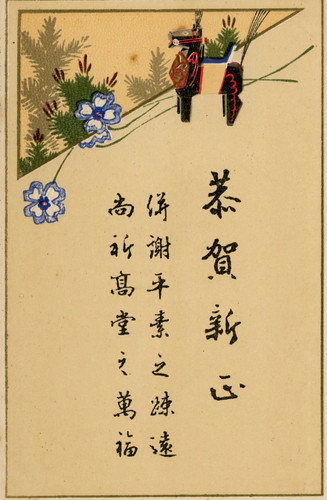 恭賀新正
併謝平素之疎遠
尚祈高堂之萬福